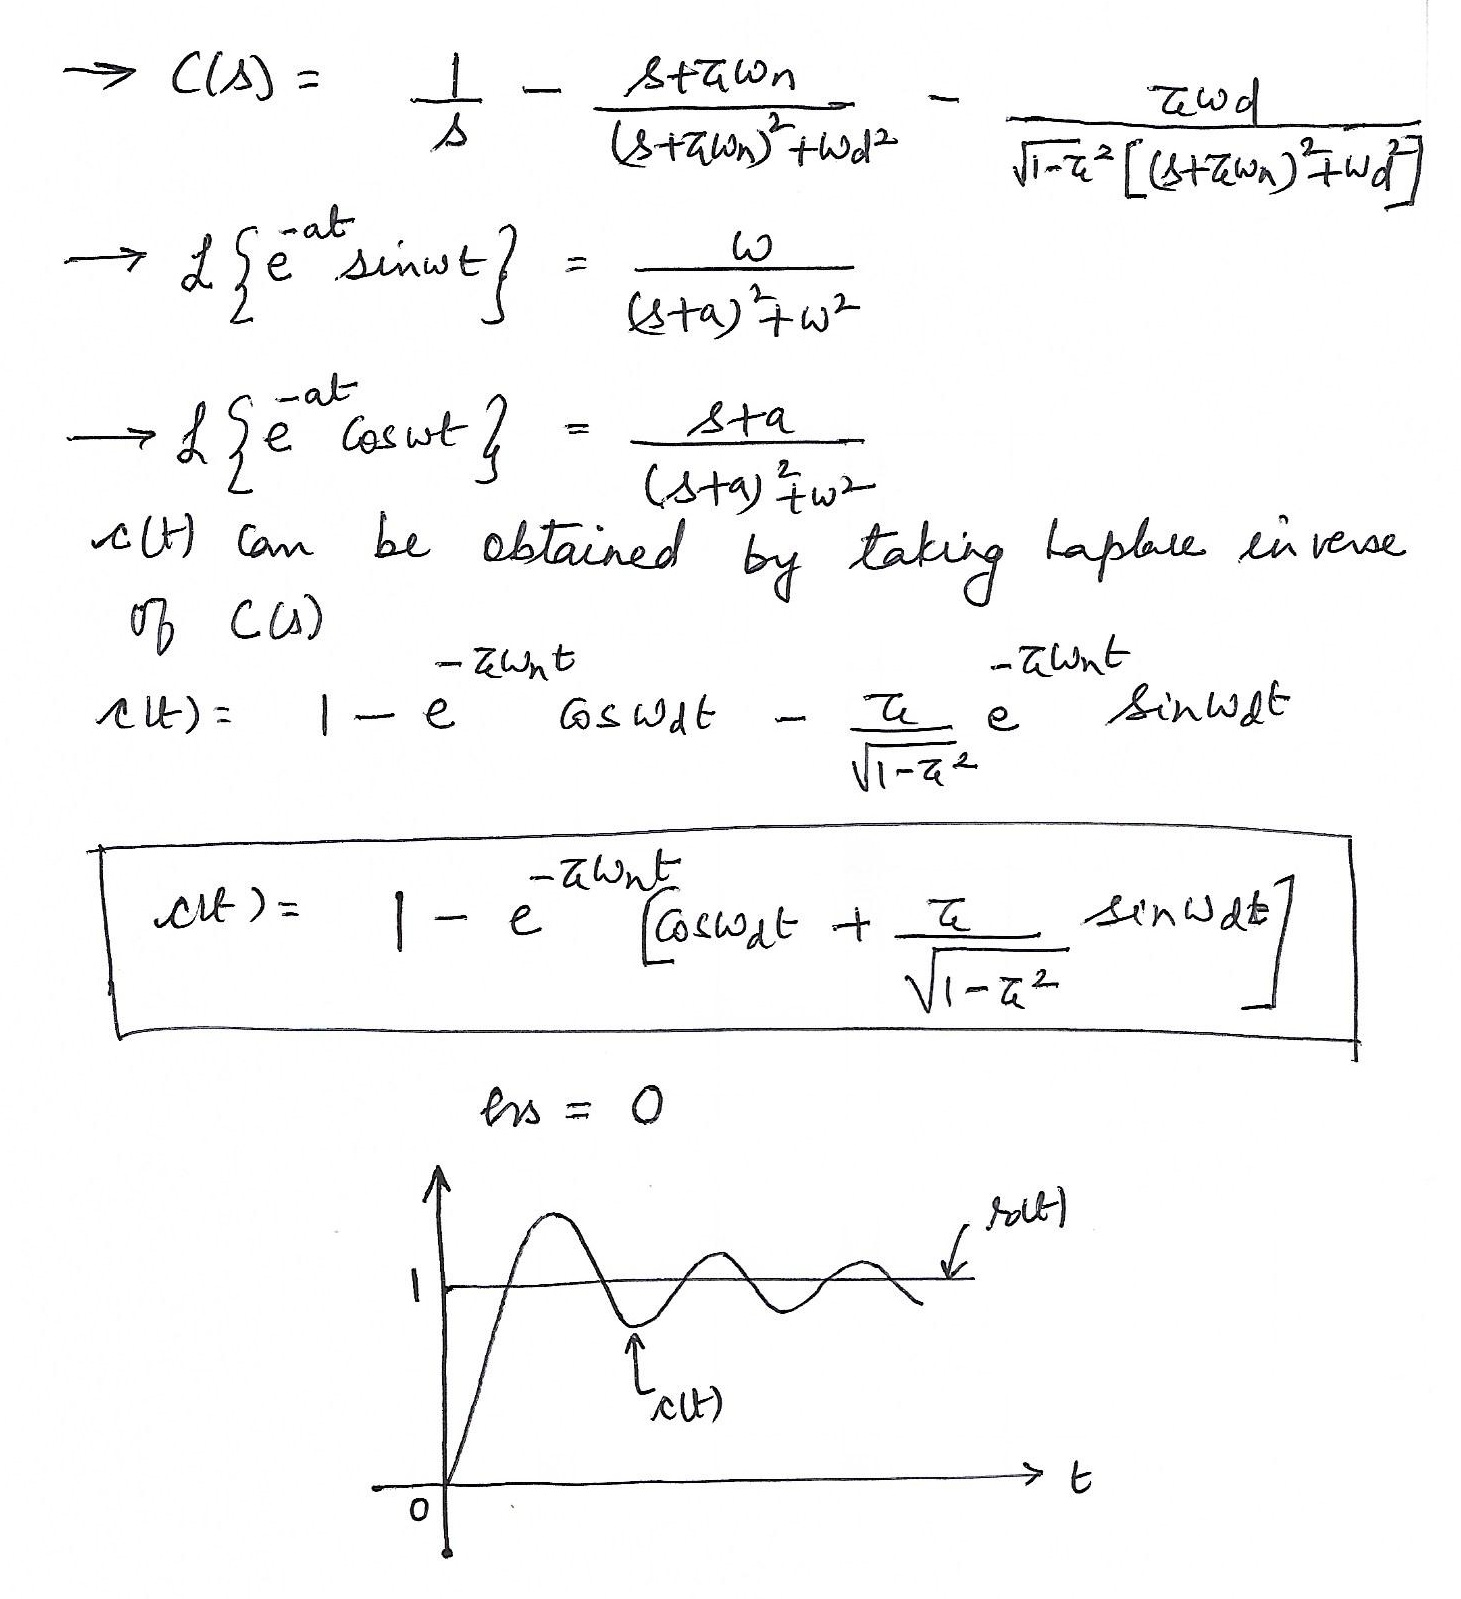 → C(s) = 1/s - (s+ξωn)/((s+ξωn)²+ωd²) - ξωd/(√1-ξ² [(s+ξωn)²+ωd²])
→ ℒ{e^-at sinωt} = ω/((s+a)²+ω²)
→ ℒ{e^-at cosωt} = (s+a)/((s+a)²+ω²)
c(t) can be obtained by taking Laplace inverse
of C(s)
c(t) = 1 - e^-ξωnt cosωdt - ξ/√1-ξ² e^-ξωnt sinωdt
c(t) = 1 - e^-ξωnt [cosωdt + ξ/√1-ξ² sinωdt]
ess = 0
r(t)
1
c(t)
t
0